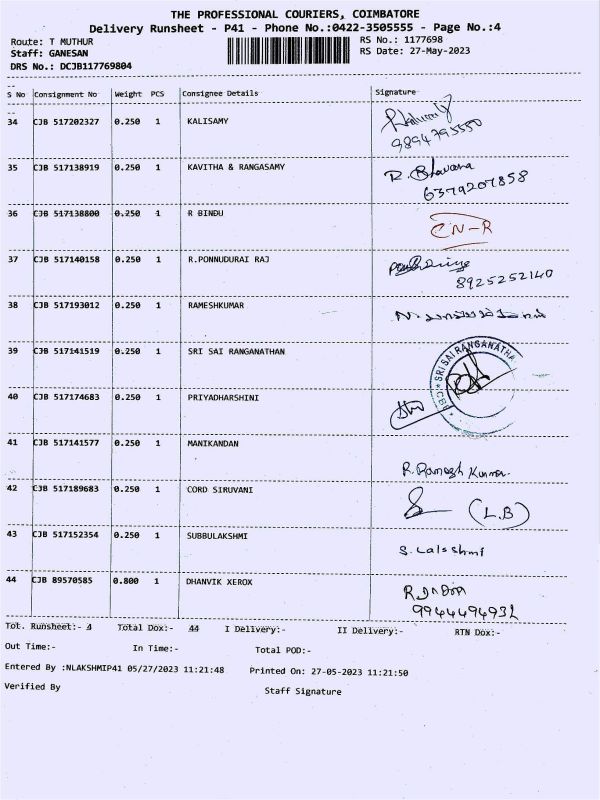 THE PROFESSIONAL COURIERS, COIMBATORE
Delivery Runsheet - P41 - Phone No.:0422-3505555 - Page No.:4
Route: T MUTHUR RS No.: 1177698
Staff: GANESAN RS Date: 27-May-2023
DRS No.: DCJB117769804
S No Consignment No Weight PCS Consignee Details Signature
34 CJB 517202327 0.250 1 KALISAMY
9894795550
35 CJB 517138919 0.250 1 KAVITHA & RANGASAMY R. Bhavana
6379207858
36 CJB 517138800 0.250 1 R BINDU CN-R
37 CJB 517140158 0.250 1 R.PONNUDURAI RAJ
8925252140
38 CJB 517193012 0.250 1 RAMESHKUMAR
39 CJB 517141519 0.250 1 SRI SAI RANGANATHAN
SRI SAI RANGANATHA
40 CJB 517174683 0.250 1 PRIYADHARSHINI
41 CJB 517141577 0.250 1 MANIKANDAN
R. Ramesh Kumar.
42 CJB 517189683 0.250 1 CORD SIRUVANI (L.B)
43 CJB 517152354 0.250 1 SUBBULAKSHMI
S. Lalsshmi
44 CJB 89570585 0.800 1 DHANVIK XEROX
9944494932
Tot. Runsheet:- 4 Total Dox:- 44 I Delivery:- II Delivery:- RTN Dox:-
Out Time:- In Time:- Total POD:-
Entered By :NLAKSHMIP41 05/27/2023 11:21:48 Printed On: 27-05-2023 11:21:50
Verified By Staff Signature